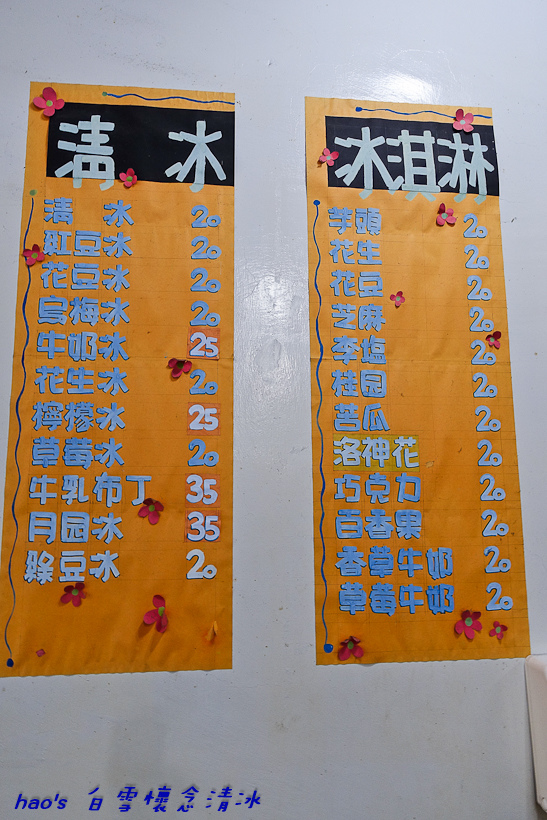 清 冰
清 冰 20
紅豆冰 20
花豆冰 20
烏梅冰 20
牛奶冰 25
花生冰 20
檸檬冰 25
草莓冰 20
牛乳布丁 35
月园冰 35
綠豆冰 20
冰淇淋
芋頭 20
花生 20
花豆 20
芝麻 20
李塩 20
桂园 20
苦瓜 20
洛神花 20
巧克力 20
百香果 20
香草牛奶 20
草莓牛奶 20
hao's 白雪懷念清冰